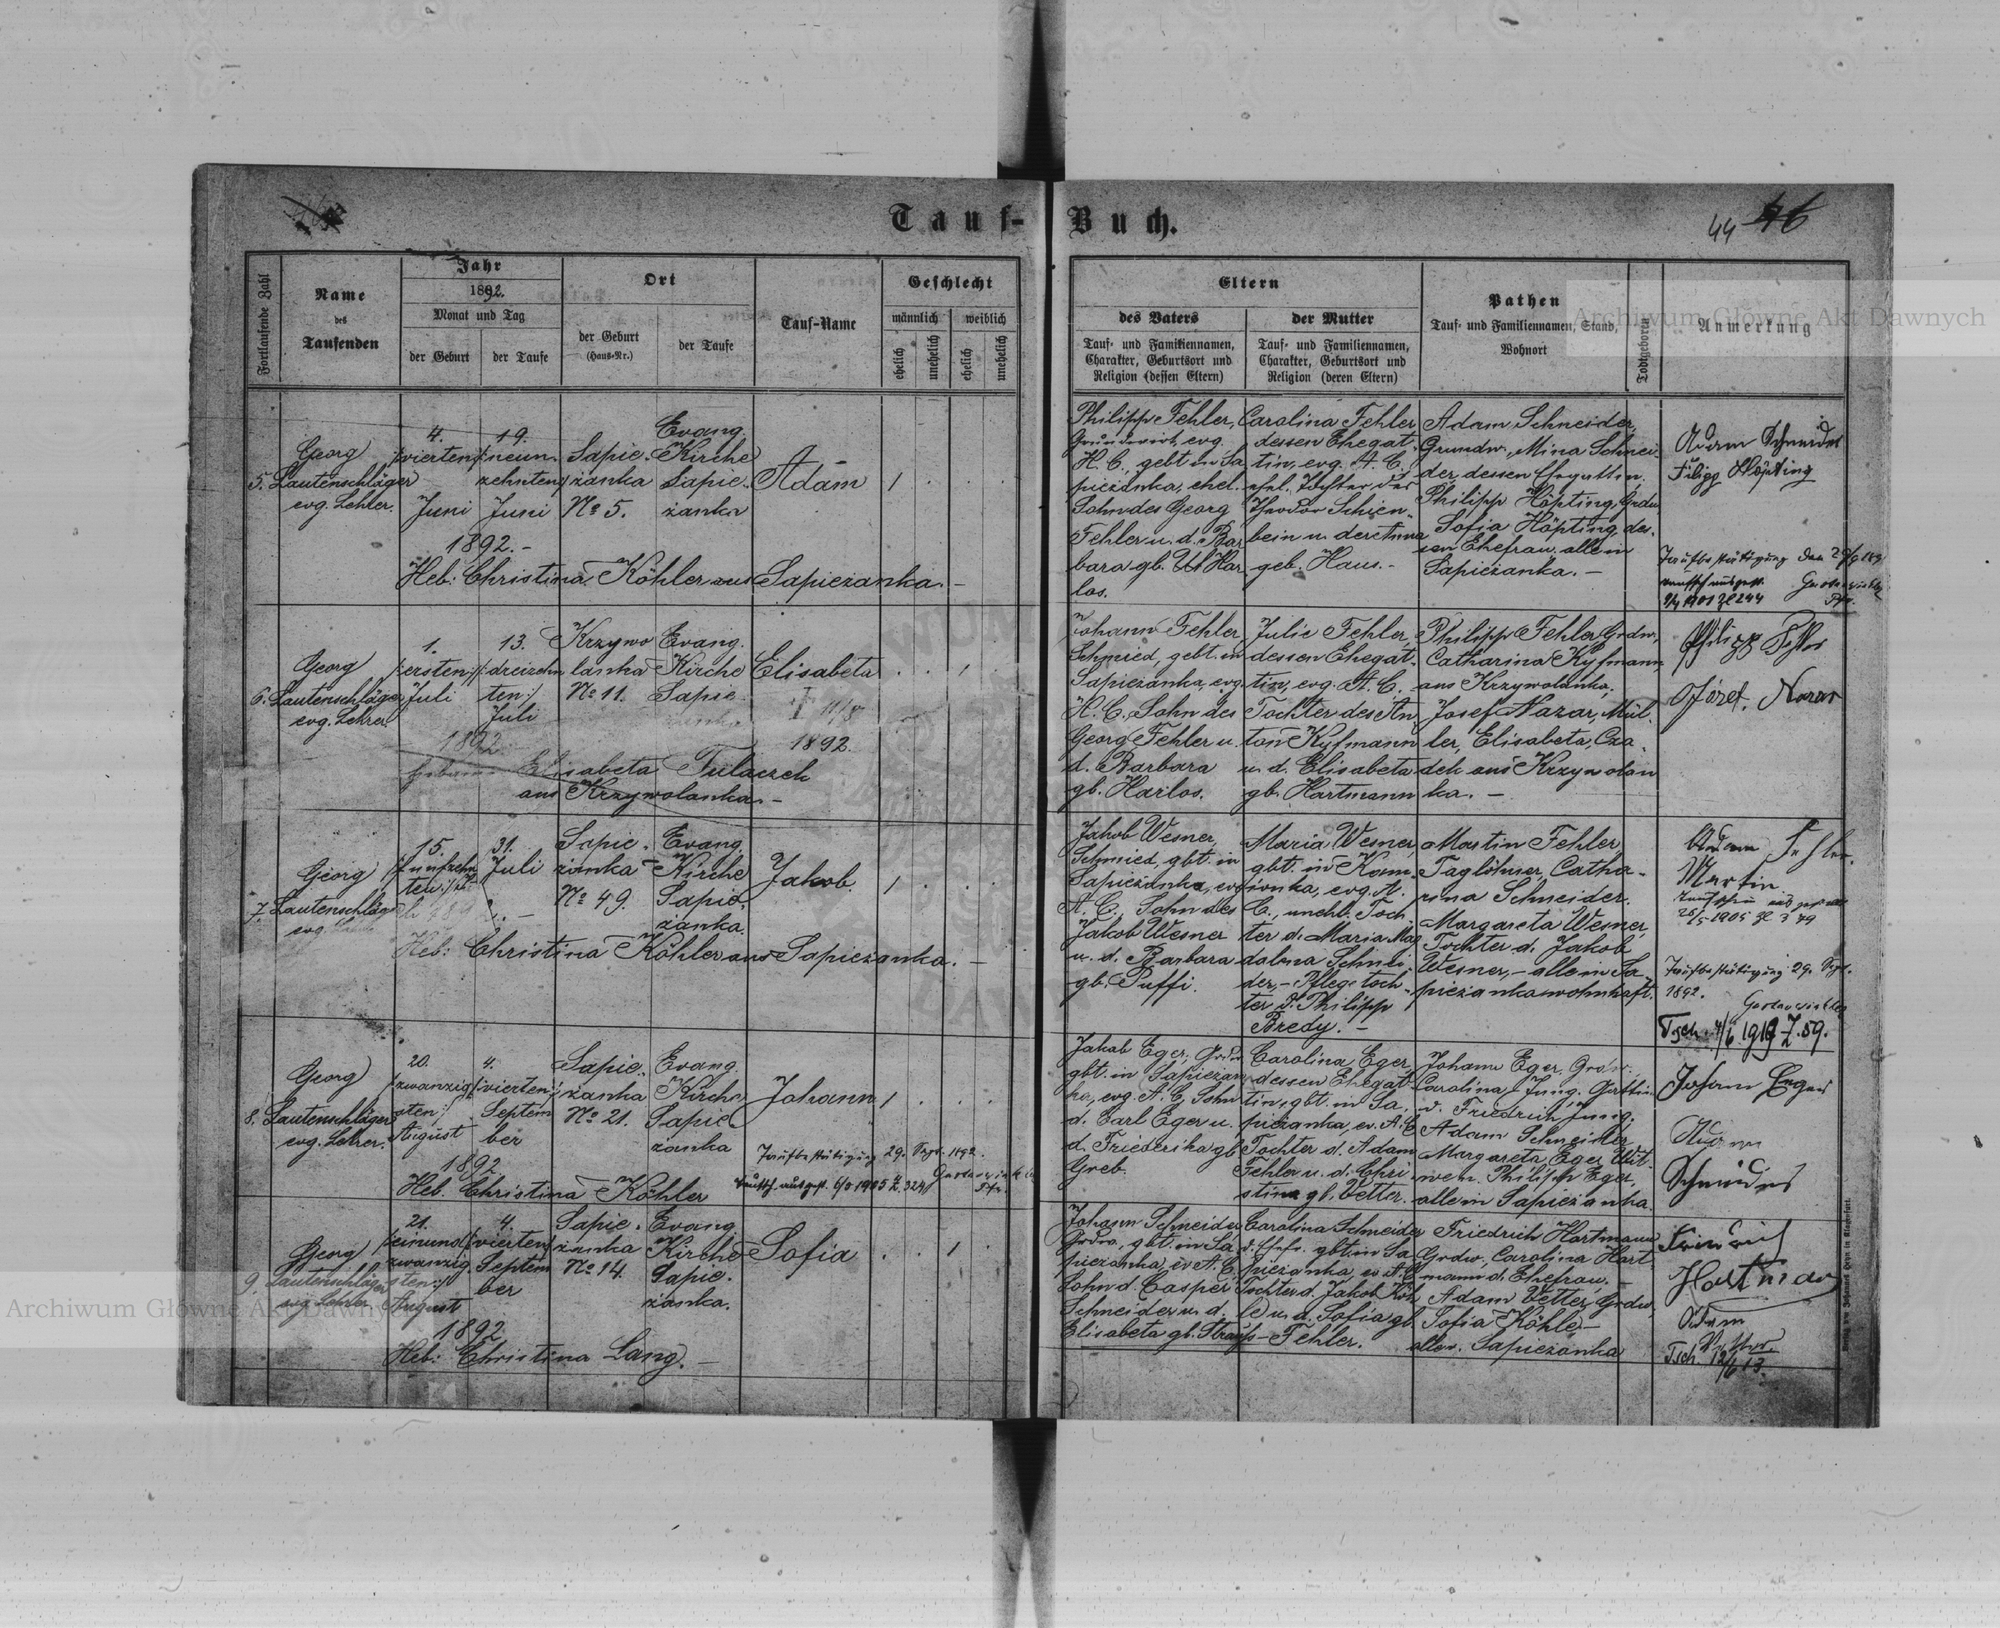 Tauf-Buch.
44 46
Fortlaufende Zahl
Name
des
Taufenden
Jahr
1892.
Monat und Tag
der Geburt
der Taufe
Ort
der Geburt
(Haus-Nr.)
der Taufe
Tauf-Name
Geschlecht
männlich
weiblich
ehelich
unehelich
ehelich
unehelich
Eltern
des Vaters
Tauf- und Familiennamen,
Charakter, Geburtsort und
Religion (dessen Eltern)
der Mutter
Tauf- und Familiennamen,
Charakter, Geburtsort und
Religion (deren Eltern)
Pathen
Tauf- und Familiennamen, Stand,
Wohnort
Todtgeborin
Anmerkung
Archiwum Główne Akt Dawnych
5.
Georg
Lautenschläger
evg. Lehrer.
4.
/:vierten:/
Juni
19.
/:neun-
zehnten:/
Juni
1892.-
Sapie-
żanka
No 5.
Evang.
Kirche
Sapie-
żanka
Adam
1
Heb: Christina Köhler aus Sapieżanka.-
Philipp Fehler,
Grundwirt, evg.
H. C., gebt in Sa
pieżanka, ehel.
Sohn des Georg
Fehler u. d. Bar
bara gb. Har
los.
Carolina Fehler
dessen Ehegat-
tin, evg. A. C.,
ehel. Tochter des
Theodor Schien-
bein u. der Anna
geb. Haus.-
Adam Schneider,
Grundw., Mina Schnei-
der, dessen Ehegattin,
Philipp Höpting, Grdw.
Sofia Höpting, des-
sen Ehefrau, alle in
Sapieżanka.-
Adam Schneider
Filipp Höpting
Taufbestätigung den
6.
Georg
Lautenschläger
evg. Lehrer
1.
/:ersten:/
Juli
13.
/:dreizehn
ten:/
Juli
1892
Krzywo
lanka
No 11.
Evang.
Kirche
Sapie
żanka
Elisabeta
11/8
1892.
Elisabeta Tulaczek
aus Krzywolanka.-
Johann Fehler,
Schmied, gebt. in
Sapieżanka, evg.
H. C., Sohn des
Georg Fehler u.
d. Barbara
gb. Harlos.
Julie Fehler,
dessen Ehegat-
tin, evg. A. C.
Tochter des An
ton Kyfmann
u. d. Elisabeta
gb. Hartmann
Philipp Fehler Grdw.,
Catharina Kyfmann,
aus Krzywolanka,
Josef Nazar, Mül-
ler, Elisabeta, Cza-
dek aus Krzywolan
ka.-
Philipp Fehler
Józef. Nazar
7.
Georg
Lautenschläger
evg.
15.
/:fünfzehn
ten:/
31.
Juli
Sapie-
żanka
No 49.
Evang.
Kirche
Sapie-
żanka.
Jakob
1
Heb: Christina Köhler aus Sapieżanka.-
Jakob Wesner,
Schmied, gbt. in
Sapieżanka, evg
A. C., Sohn des
Jakob Wesner
u. d. Barbara
gb. Puffi.
Maria Wesner,
gbt. in Kam-
ionka, evg. A.
C., unehl. Toch-
ter d. Maria Mag
dalena Schnei-
der,- Pflegetoch-
ter d. Philipp
Bredy.-
Martin Fehler,
Taglöhner, Catha-
rina Schneider.
Margareta Wesner,
Tochter d. Jakob
Wesner,- alle in Sa-
pieżanka wohnhaft.
Adam Fehler.
Martin
Taufbestätigung 29. Sept.
1892.
Tsch. 4/6 1919 Z. 59.
8.
Georg
Lautenschläger
evg. Lehrer.
20.
/:zwanzig
sten:/
August
4.
/:vierten:/
Septem
ber
1892
Sapie-
żanka
No 21.
Evang.
Kirche
Sapie-
żanka
Johann
1
Taufbestätigung 29. Sept. 1892.
Heb. Christina Köhler
Jakob Eger, Grdw.
gbt. in Sapieżan
ka, evg. A. C., Sohn
d. Carl Eger u.
d. Friederika gb
Greb.
Carolina Eger,
dessen Ehegat-
tin, gbt. in Sa-
pieżanka, ev. A. C
Tochter d. Adam
Fehler u. d. Chri-
stina gb. Vetter.
Johann Eger, Grdw.,
Carolina Jung, Gattin
d. Friedrich Jung,
Adam Schneider
Margareta Eger, Wit-
we n. Philipp Eger,
alle in Sapieżanka.
Johann Eger
Adam
Schneider
9.
Georg
Lautenschläger
evg. Lehrer
21.
/:einund
zwanzig
sten:/
August
4.
/:vierten:/
Septem
ber
1892
Sapie-
żanka
No 14.
Evang.
Kirche
Sapie-
żanka.
Sofia
1
Heb: Christina Lang.-
Johann Schneider
Grdw., gbt. in Sa
pieżanka, ev. A. C.
Sohn d. Casper
Schneider u. d.
Elisabeta gb. Strauß-
Carolina Schneider
d. Ehefr. gbt. in Sa
pieżanka, ev. A. C
Tochter d. Jakob Köh
le u. d. Sofia gb
Fehler.
Friedrich Hartmann
Grdw., Carolina Hart
mann d. Ehefrau,-
Adam Vetter, Grdw.,
Sofia Köhle,-
alle in Sapieżanka
Adam
Tsch. 12/6 13.
Archiwum Główne Akt Dawnych